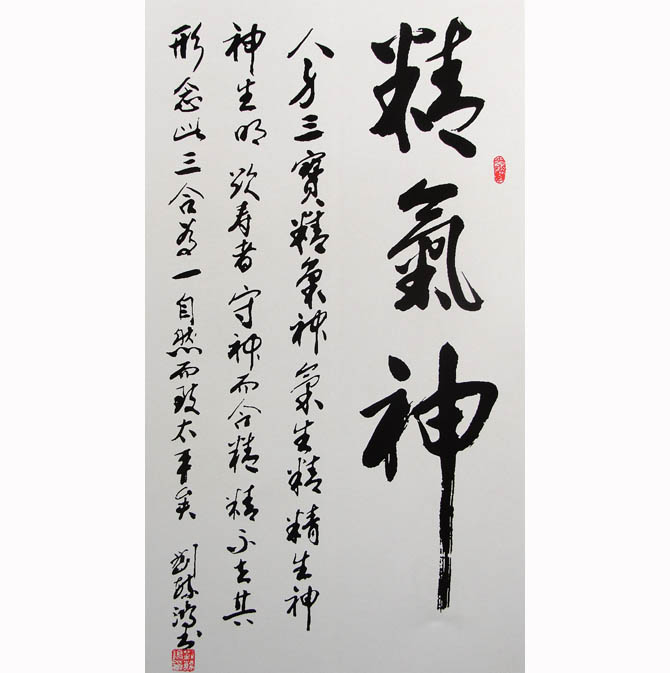 精氣神
人身三寶精氣神氣生精精生神
神生明欲寿者守神而合精精不去其
形念此三合為一自然而致太平矣 劉鴻书